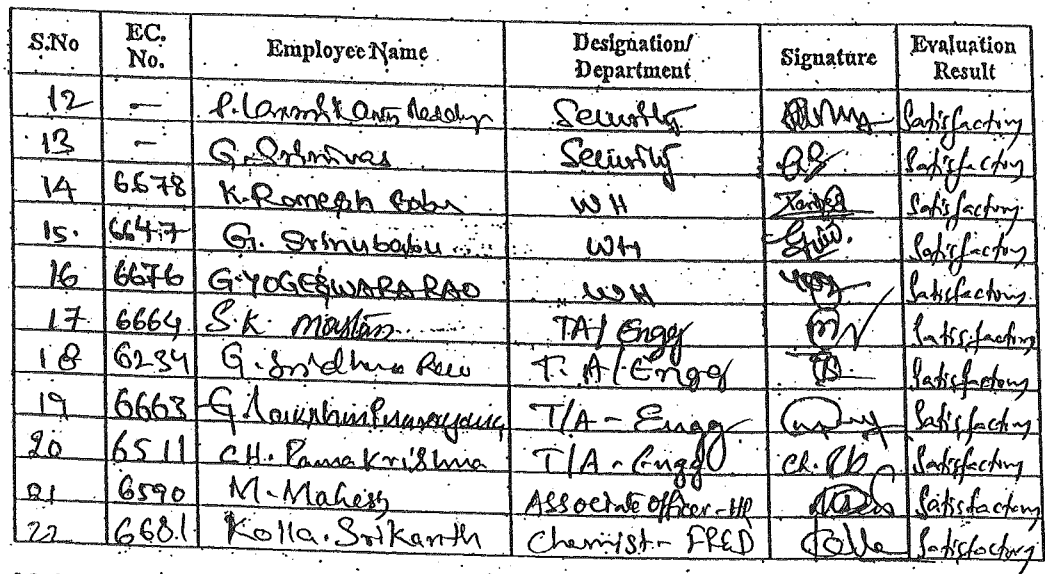 S.No EC. No. Employee Name Designation/ Department Signature Evaluation Result
12 - Security Satisfactory
13 - G. Srinivas Security Satisfactory
14 6678 K. Ramesh Babu WH Satisfactory
15. 6647 G. Srinubabu WH Satisfactory
16 6676 G. YOGESWARA RAO WH Satisfactory
17 6664 S.K. Mastan TA/Engg Satisfactory
18 6234 G. Sridhar Rao T.A/Engg Satisfactory
19 6663 G T/A - Engg Satisfactory
20 6511 CH. Rama Krishna T/A - Engg Ch. Satisfactory
21 6590 M. Mahesh Associate officer - HR Satisfactory
22 6681 Kolla. Srikanth Chemist - FR&D Kolla Satisfactory